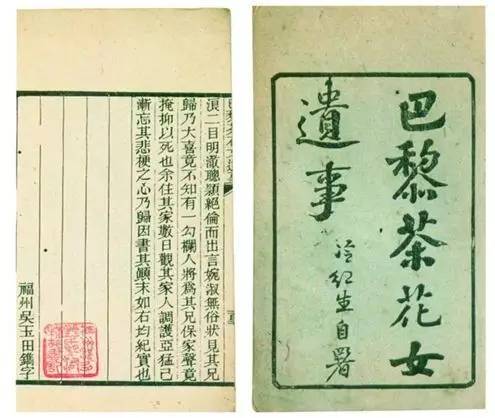 巴黎茶花女
遺事
冷紅生自署
浪二目明澈聰穎絕倫而出言婉淑無俗狀見其兄
歸乃大喜竟不知有一勾欄人將爲其兄保家聲竟
掩抑以死也余住其家數日觀其家人調護亞猛己
漸忘其悲梗之心乃歸因書其顛末如右均紀實也
福州吳玉田鐫字